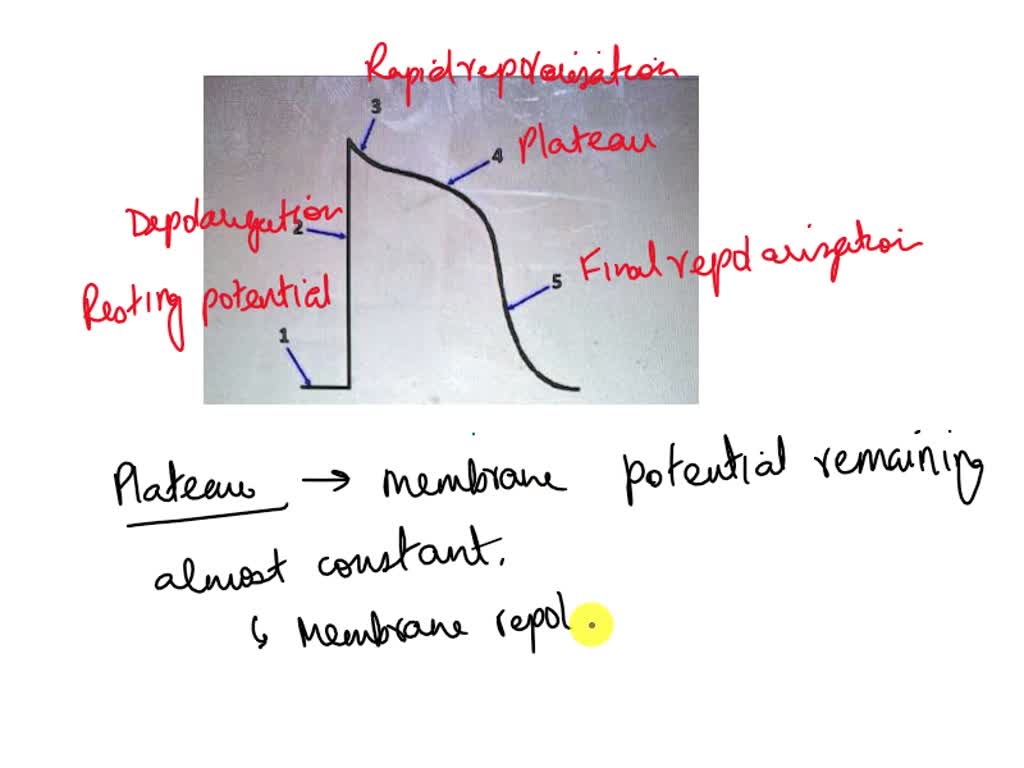 Rapid repolarisation
3
4 Plateau
Depolarization
2
5 Final repolarisation
Resting potential
1
Plateau → membrane potential remaining
almost constant.
↳ Membrane repol